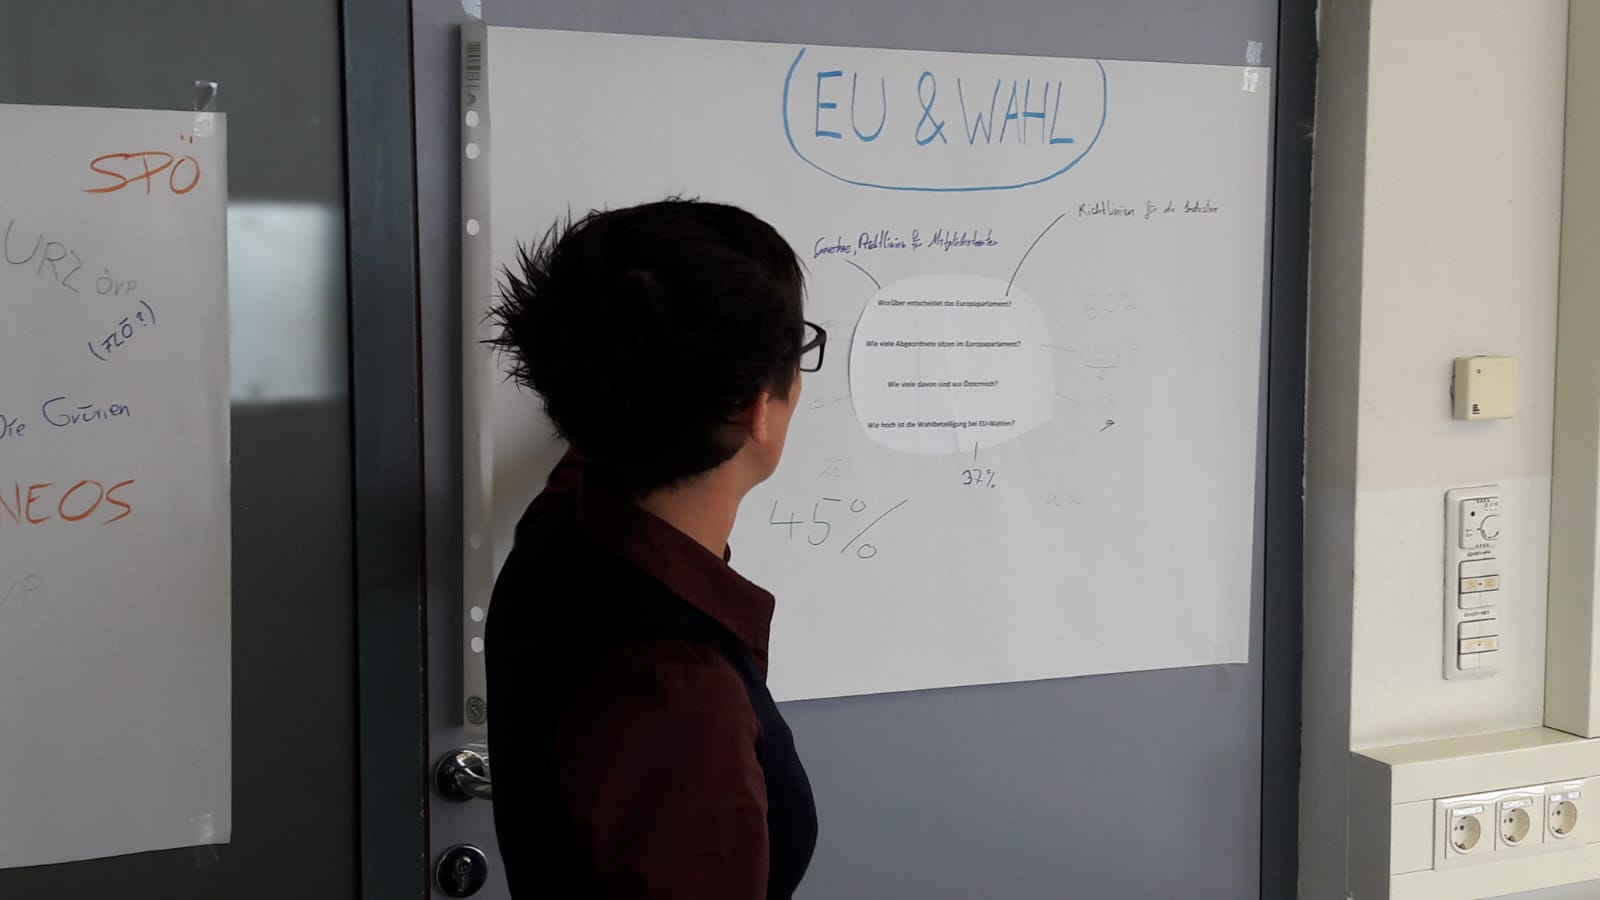 SPÖ
URZ ÖVP
(FLÖ?)
Die Grünen
NEOS
VP
EU & WAHL
Richtlinien für die Industrie
Gesetze, Richtlinien für Mitgliedsstaaten
Worüber entscheidet das Europaparlament?
60%
Wie viele Abgeordnete sitzen im Europaparlament?
Wie viele davon sind aus Österreich?
3
18
Wie hoch ist die Wahlbeteiligung bei EU-Wahlen?
25%
37%
40%
45%